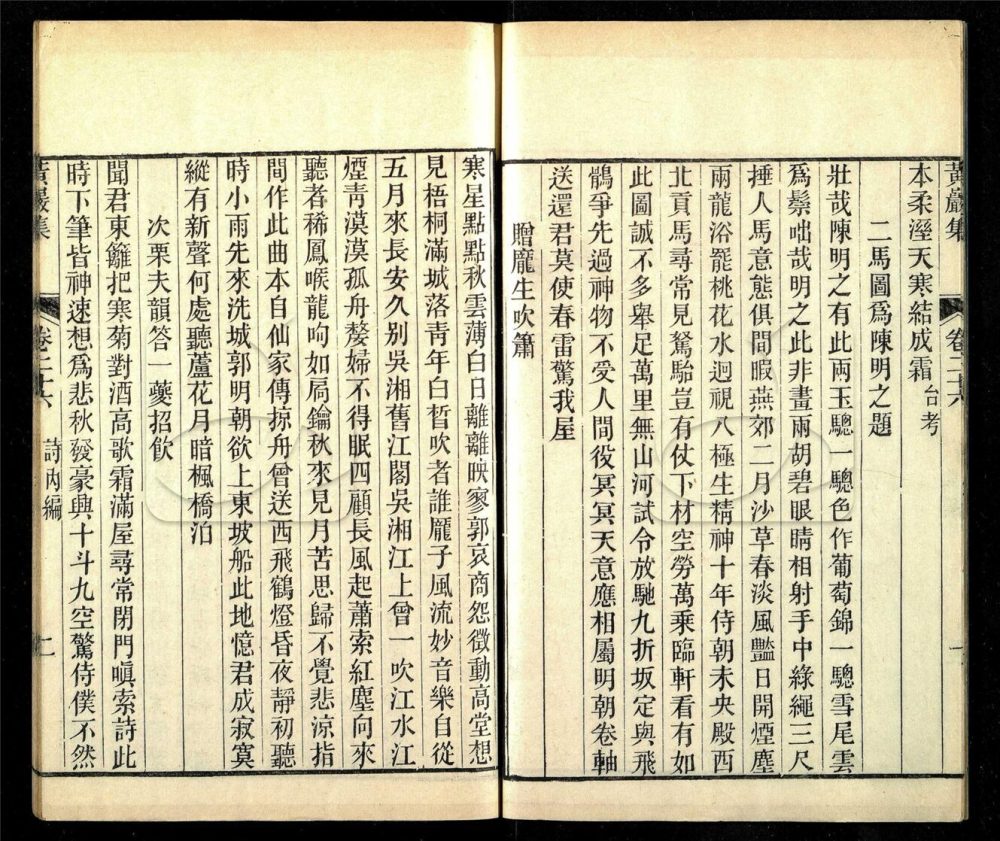 黃巖集 卷二十六
本柔溼天寒結成霜 台考
二馬圖爲陳明之題
壯哉陳明之有此兩玉驄一驄色作葡萄錦一驄雪尾雲
爲鬃咄哉明之此非畫兩胡碧眼睛相射手中綠繩三尺
捶人馬意態俱閒暇燕郊二月沙草春淡風豔日開煙塵
兩龍浴罷桃花水迥視八極生精神十年侍朝未央殿西
北貢馬尋常見駑駘豈有仗下材空勞萬乘臨軒看有如
此圖誠不多舉足萬里無山河試令放馳九折坂定與飛
鶻爭先過神物不受人間役冥冥天意應相屬明朝卷軸
送還君莫使春雷驚我屋
贈龐生吹簫
寒星點點秋雲薄白日離離映寥郭哀商怨徵動高堂想
見梧桐滿城落靑年白皙吹者誰龐子風流妙音樂自從
五月來長安久別吳湘舊江閣吳湘江上曾一吹江水江
煙靑漠漠孤舟嫠婦不得眠四顧長風起蕭索紅塵向來
聽者稀鳳喉龍吻如局鑰秋來見月苦思歸不覺悲涼指
間作此曲本自仙家傳掠舟曾送西飛鶴燈昏夜靜初聽
時小雨先來洗城郭明朝欲上東坡船此地憶君成寂寞
縱有新聲何處聽蘆花月暗楓橋泊
次栗夫韻答一夔招飮
聞君東籬把寒菊對酒高歌霜滿屋尋常閉門嗔索詩此
時下筆皆神速想爲悲秋發豪興十斗九空驚侍僕不然
黃巖集 卷二十六 詩內編